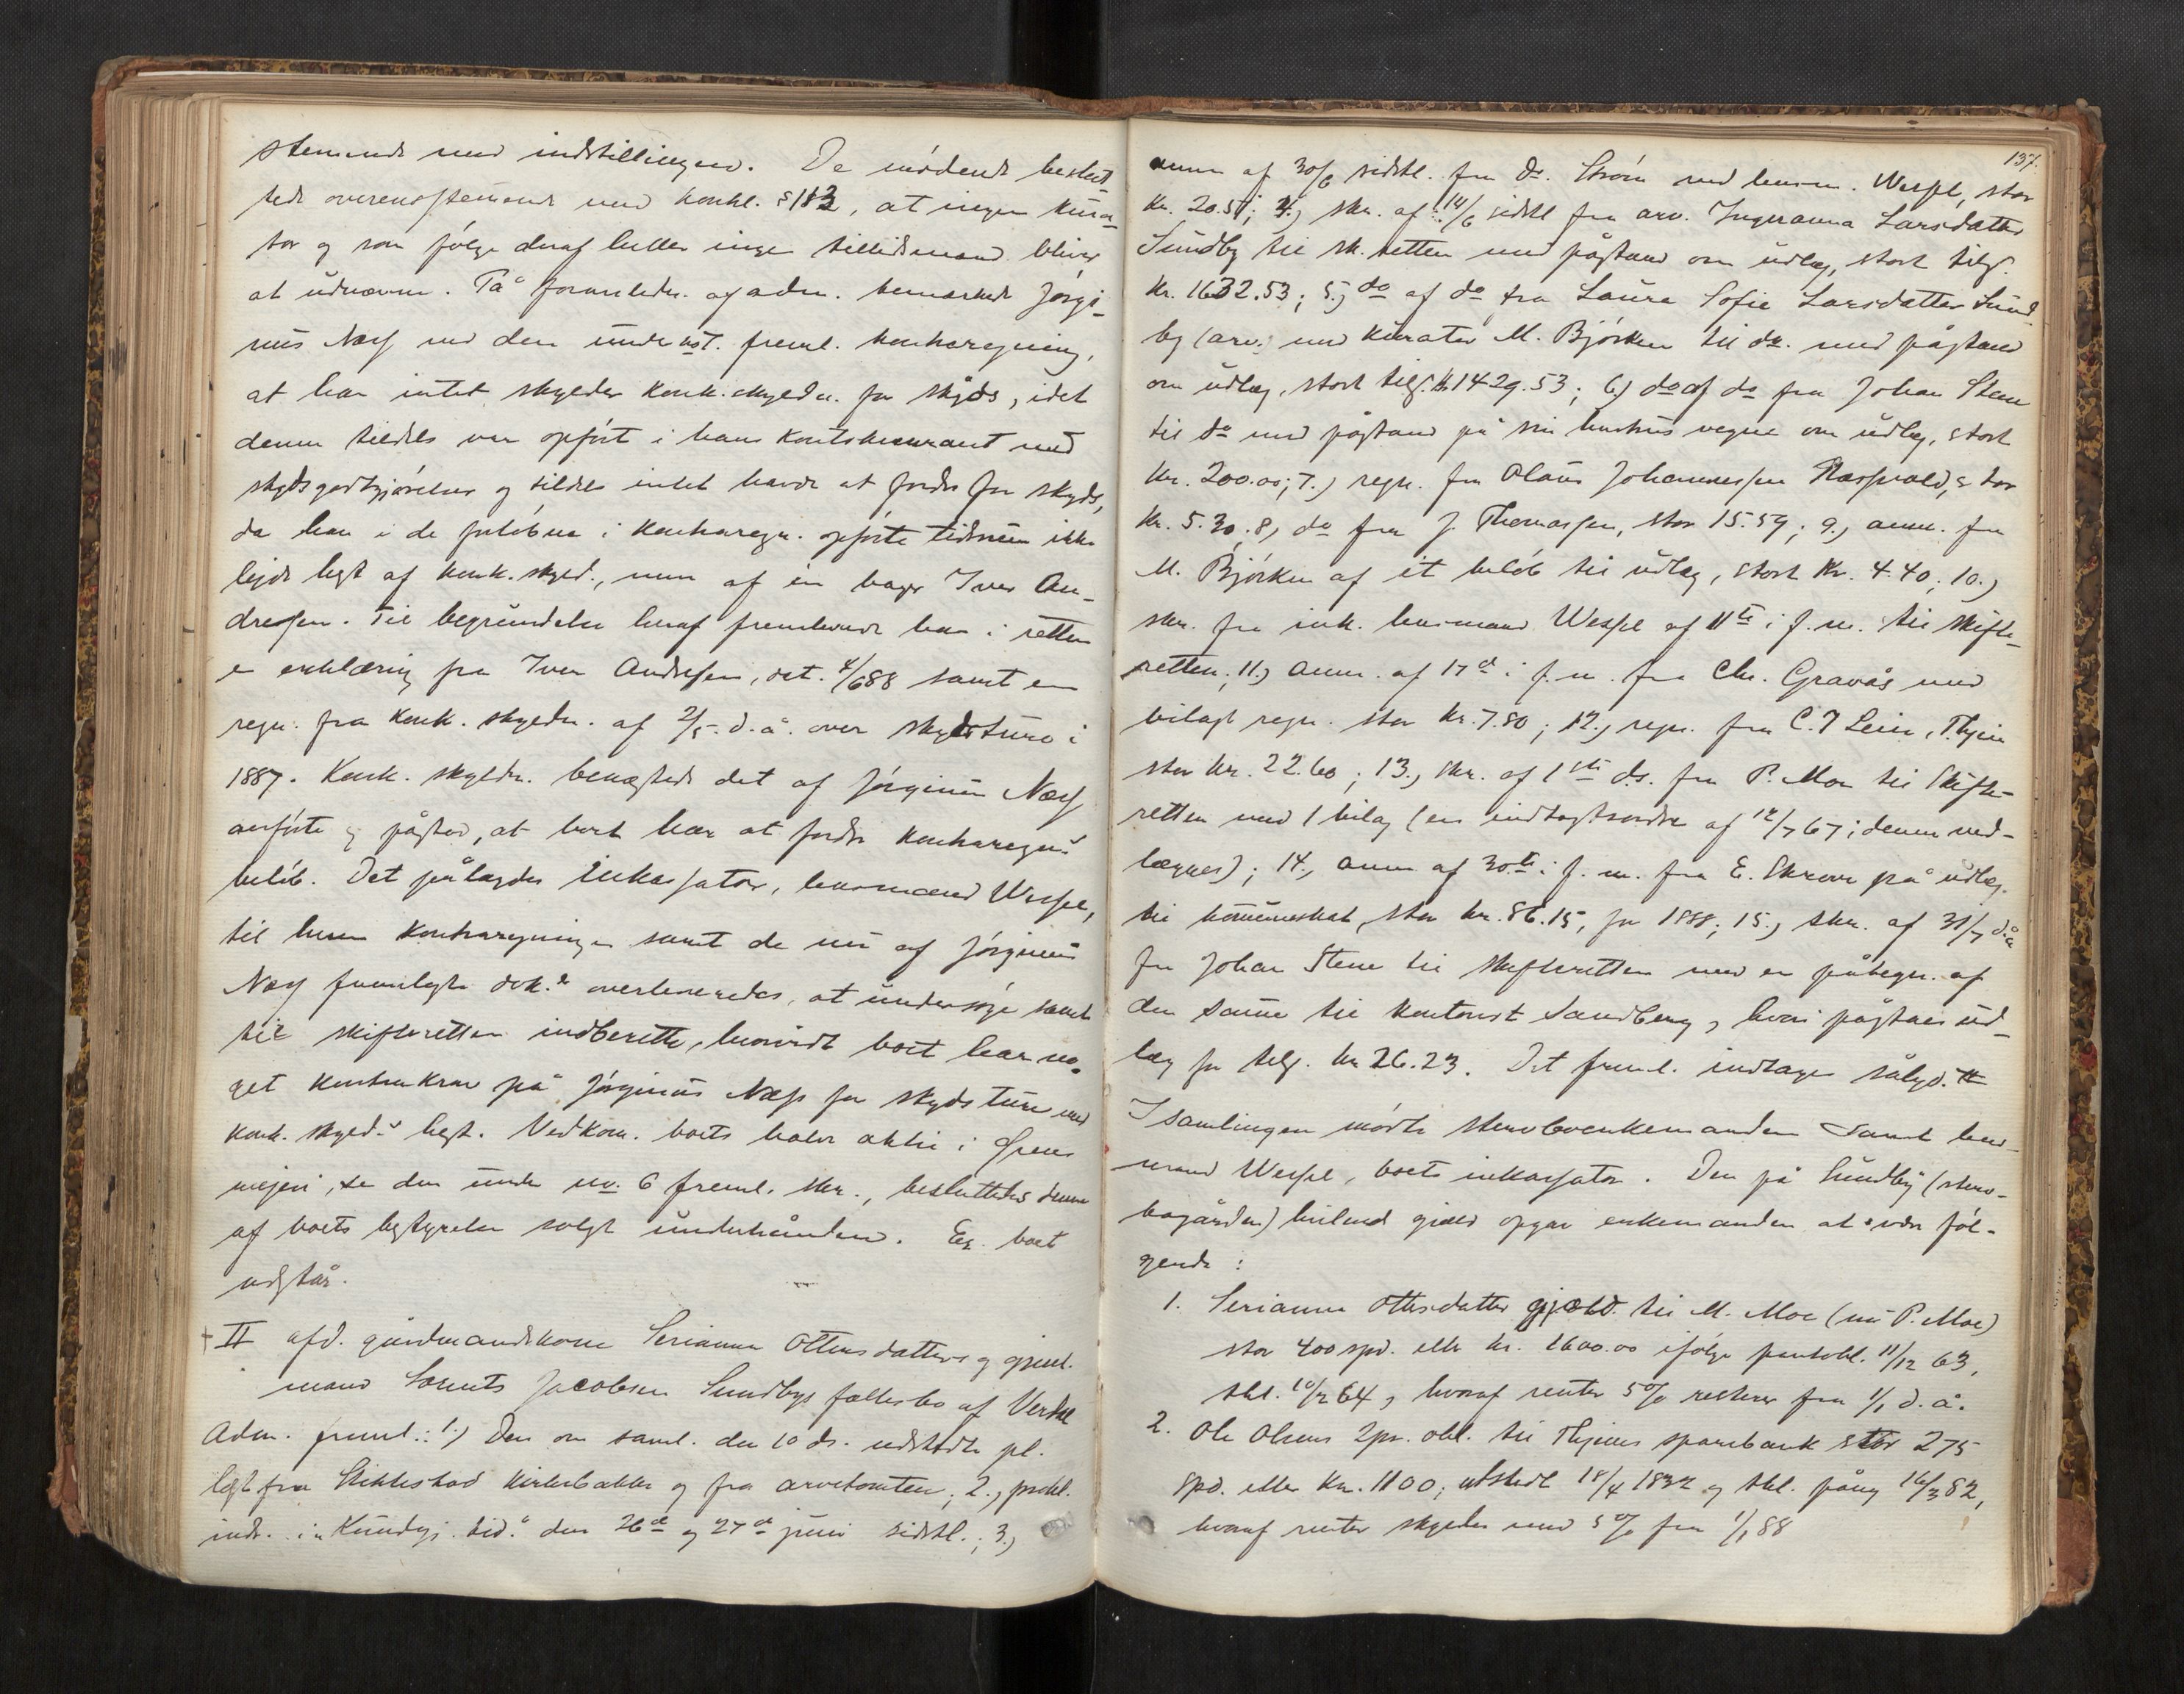 stemende med indstillingen. De mødende beslut-
tede overensstemmende med konkl. § 183, at ingen kura-
tor og som følge deraf heller ingen tillidsmand bliver
at udnævne. På formuleder. af adm. bemærkede Jørgi-
nus Næss ved den under nst. freml. kontraregning,
at han intet skylder konk.skyldn. for skyds, idet
denne tildels var opført i hans kontokurant med
skydsgodtgjørelser og tildels intet havde at fordre for skyds,
da han i de forløbne i kontraregn. opførte tidsrum ikke
lejede hest af konk. skyld., men af en bager Iver An-
dresen. Til begrundelse heraf fremlevede han i retten
en erklæring fra Iver Andresen, dat. 4/6 88 samt en
regn. fra konk. skyldn. af 2/5 d.å. over skydsture i
1887. Konk. skyldn. benægtede det af Jørginus Næss
anførte og påstod, at boet har at fordre kontraregns
beløb. Det pålagdes inkassator, lensmand Wessel,
til hvem kontraregningen samt de nu af Jørginus
Næss fremlagte dok.r overleveredes, at undersøge samt
til skifteretten indberette, hvorvidt boet har no-
get kontrakrav på Jørginus Næss for skydsture med
konk. skyld.s hest. Vedkom. boets halve aktie i Ørens
mejeri, se den under no. 6 freml. skr., besluttedes denne
af boets bestyrelse solgt underhånden. Es. boet
udstår.
II afd. gårdmandskone Serianna Ottersdatters og gjenl.
mand Lornts Jacobsen Sundbys fællesbo af Verdal
Adm. freml.: 1.) Den om saml. den 10 ds. udstedte pl.
læst fra Stiklestad kirkebakke og fra arvetomten; 2.) prokl.
indr. i "Kundgj. tid." den 26de og 27de juni sidstl.; 3.)
137.
anm af 30/6 sidstl. fra dr. Strøm ved lensm. Wessel, stor
Kr. 20.51; 4.) skr. af 14/6 sidstl fra arv. Ingeranna Larsdatter
Sundby til sk.retten med påstand om udlæg, stort tils.
Kr. 1632.53; 5.) do af do fra Laura Sofie Larsdatter Sund-
by (arv.) med kurator M. Bjørken til do. med påstand
om udlæg, stort tils. kr 1429.53; 6.) do af do fra Johan Stene
til do med påstand på sin hustrus vegne om udlæg, stort
Kr. 200.00; 7.) regn. fra Olaus Johannessen Næssvold, stor
Kr. 5.30, 8.) do fra J. Thomassen, stor 15.59; 9.) anm. fra
M. Bjørken af et beløb til udlæg, stort Kr. 4.40; 10.)
skr. fra ink. lensmand Wessel af 11te i f.m. til skifte-
retten; 11.) anm. af 17de i f.m. fra Chr. Gravås med
bilagt regn. stor kr. 7.80; 12.) regn. fra C. J Leim, Thjem
stor kr. 22.60; 13.) skr. af 1ste ds. fra P. Moe til Skifte-
retten med 1 bilag (en indtægtsordre af 12/7 67; denne ved-
lægges); 14.) anm af 30te i f.m. fra E. Skrove på udlæg.
til kommuneskat, stor kr. 86.15, for 1888; 15.) skr. af 31/7 d.å
fra Johan Stene til skifteretten med en påtegn. af
den samme til kontorist Sandberg, hvori påstaes ud-
læg for tils. kr 26.23. Det freml. indtages sålyd. #
I samlingen mødte stervboenkemanden samt lens-
mand Wessel, boets inkassator. Den på Sundby (sterv-
bogården) heftende gjæld opgav enkemanden at være føl-
gende:
1. Serianna Ottersdatter gjæld. til M. Moe (nu P. Moe)
stor 400 spd. eller kr. 1600.00 ifølge pantobl. 11/12 63,
thl. 10/2 64, hvoraf renter 5% resterer fra 1/1 d.å.
2. Ole Olsens 2pr. obl. til Thjems sparebank stor 275
Spd. eller Kr. 1100, udstedt 18/4 1832 og thl. påny 16/3 82,
hvoraf renter skyldes med 5% fra 1/1 88